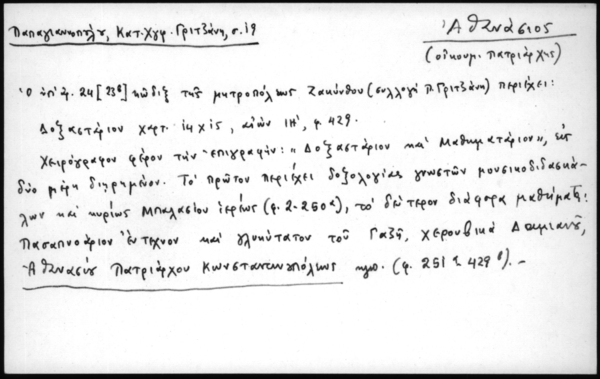 Παπαγιαννοπούλου, Κατ. Χγφ. Γριτζάνη, σ. 19
Ἀθανάσιος
(οἰκουμ. πατριάρχης)
Ὁ ὑπ' ἀρ. 24 [23β] κῶδιξ τῆς μητροπόλεως Ζακύνθου (συλλογή Π. Γριτζάνη) περιέχει:
Δοξαστάριον χαρτ. 14 χ 15, αἰών ΙΗ', φ. 429.
Χειρόγραφον φέρον τήν ἐπιγραφήν: "Δοξαστάριον καί Μαθηματάριον", εἰς
δύο μέρη διῃρημένον. Τό πρῶτον περιέχει δοξολογίας γνωστῶν μουσικοδιδασκά-
λων καί κυρίως Μπαλασίου ἱερέως (φ. 2-250α), τό δεύτερον διάφορα μαθήματα:
Πασαπνοάριον ἔντεχνον καί γλυκύτατον τοῦ Γαζῆ, χερουβικά Δαμιανοῦ,
Ἀθανασίου Πατριάρχου Κωνσταντινουπόλεως κ.λπ. (φ. 251-429β). -